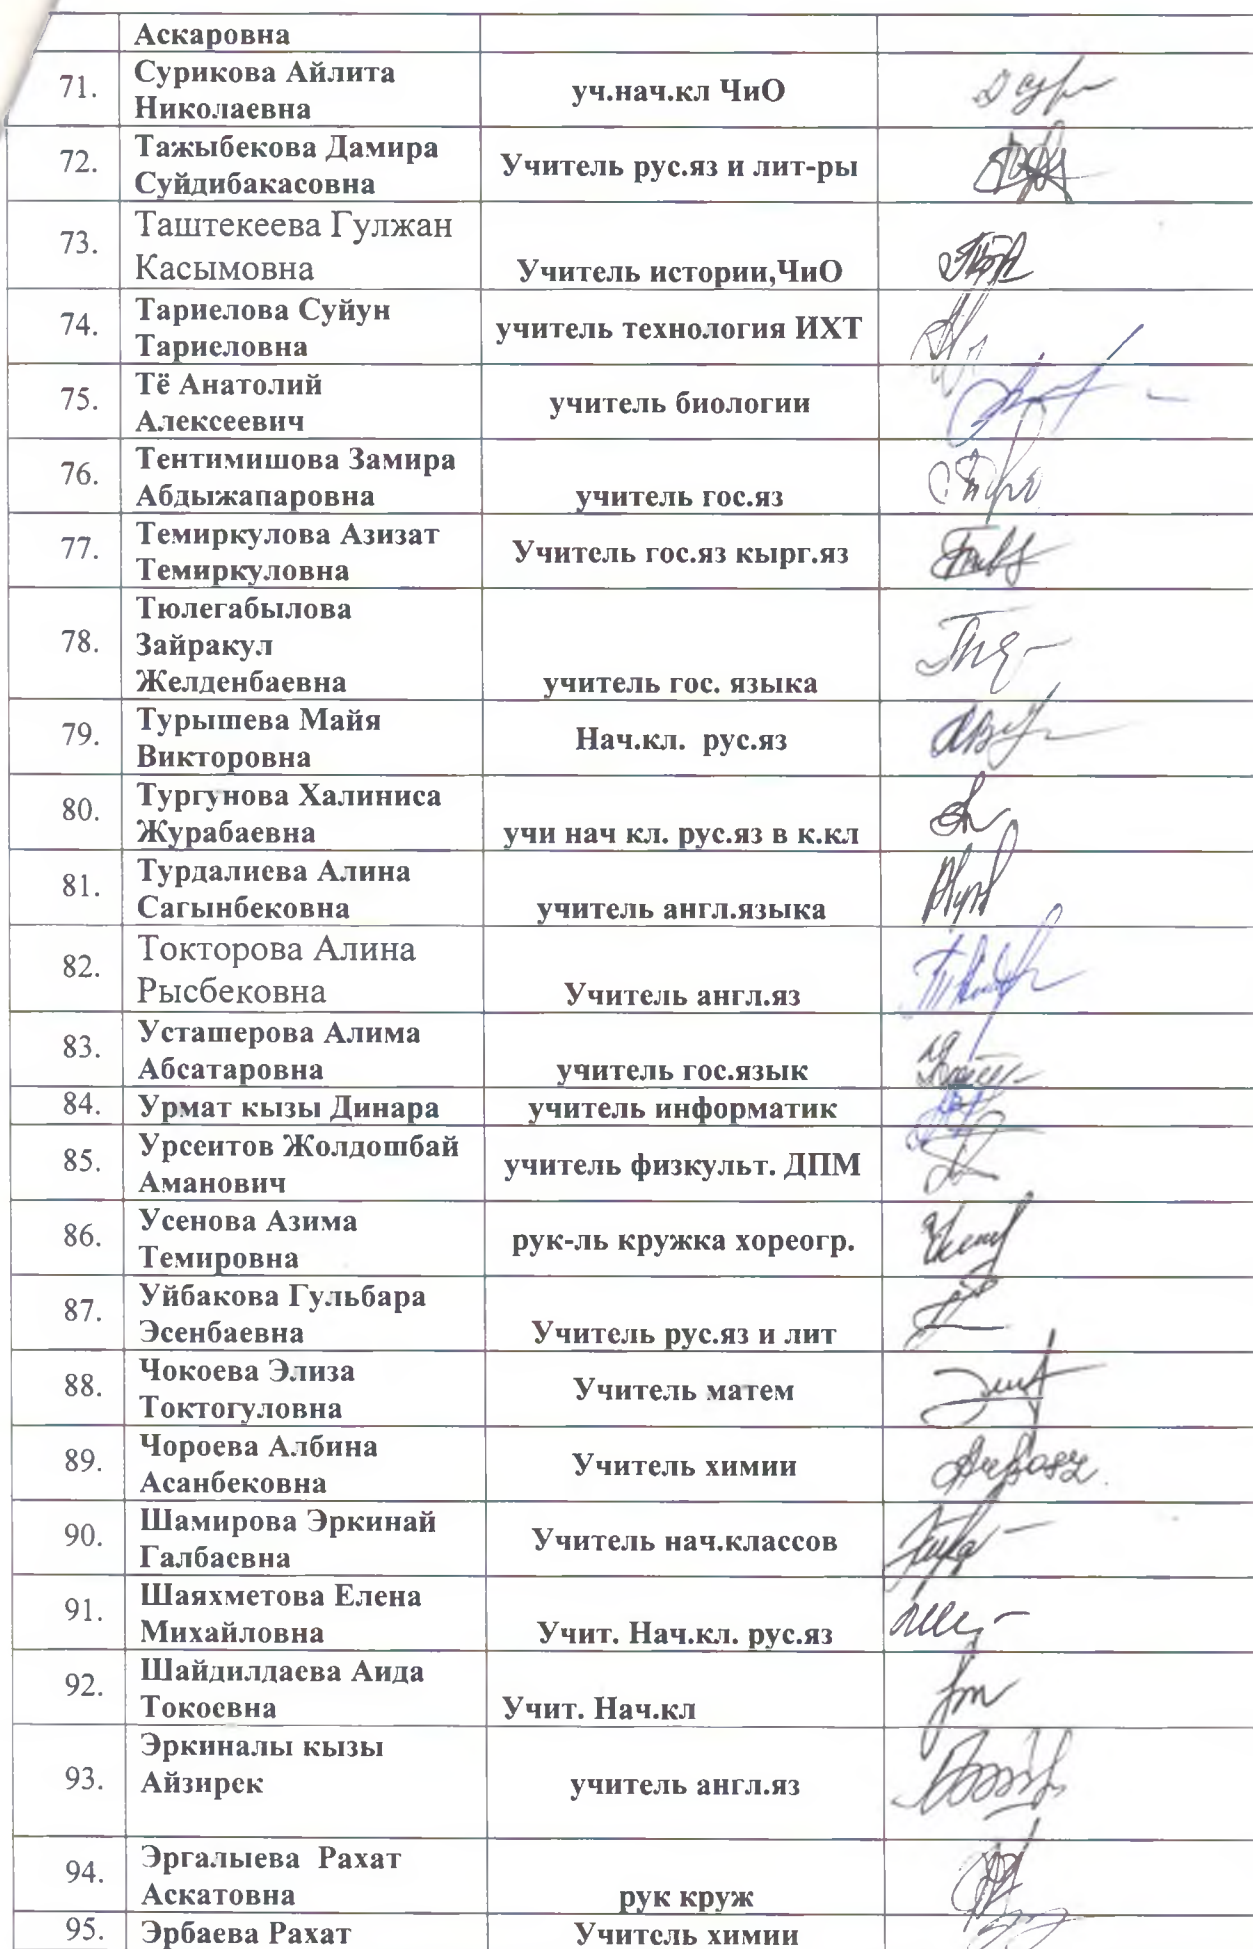 Аскаровна
71. Сурикова Айлита
Николаевна
уч.нач.кл ЧиО
72. Тажыбекова Дамира
Суйдибакасовна
Учитель рус.яз и лит-ры
73. Таштекеева Гулжан
Касымовна
Учитель истории,ЧиО
74. Тариелова Суйун
Тариеловна
учитель технология ИХТ
75. Тё Анатолий
Алексеевич
учитель биологии
76. Тентимишова Замира
Абдыжапаровна
учитель гос.яз
77. Темиркулова Азизат
Темиркуловна
Учитель гос.яз кырг.яз
78. Тюлегабылова
Зайракул
Желденбаевна
учитель гос. языка
79. Турышева Майя
Викторовна
Нач.кл. рус.яз
80. Тургунова Халиниса
Журабаевна
учи нач кл. рус.яз в к.кл
81. Турдалиева Алина
Сагынбековна
учитель англ.языка
82. Токторова Алина
Рысбековна
Учитель англ.яз
83. Усташерова Алима
Абсатаровна
учитель гос.язык
84. Урмат кызы Динара
учитель информатик
85. Урсеитов Жолдошбай
Аманович
учитель физкульт. ДПМ
86. Усенова Азима
Темировна
рук-ль кружка хореогр.
87. Уйбакова Гульбара
Эсенбаевна
Учитель рус.яз и лит
88. Чокоева Элиза
Токтогуловна
Учитель матем
89. Чороева Албина
Асанбековна
Учитель химии
90. Шамирова Эркинай
Галбаевна
Учитель нач.классов
91. Шаяхметова Елена
Михайловна
Учит. Нач.кл. рус.яз
92. Шайдилдаева Аида
Токоевна
Учит. Нач.кл
93. Эркиналы кызы
Айзирек
учитель англ.яз
94. Эргалыева Рахат
Аскатовна
рук круж
95. Эрбаева Рахат
Учитель химии